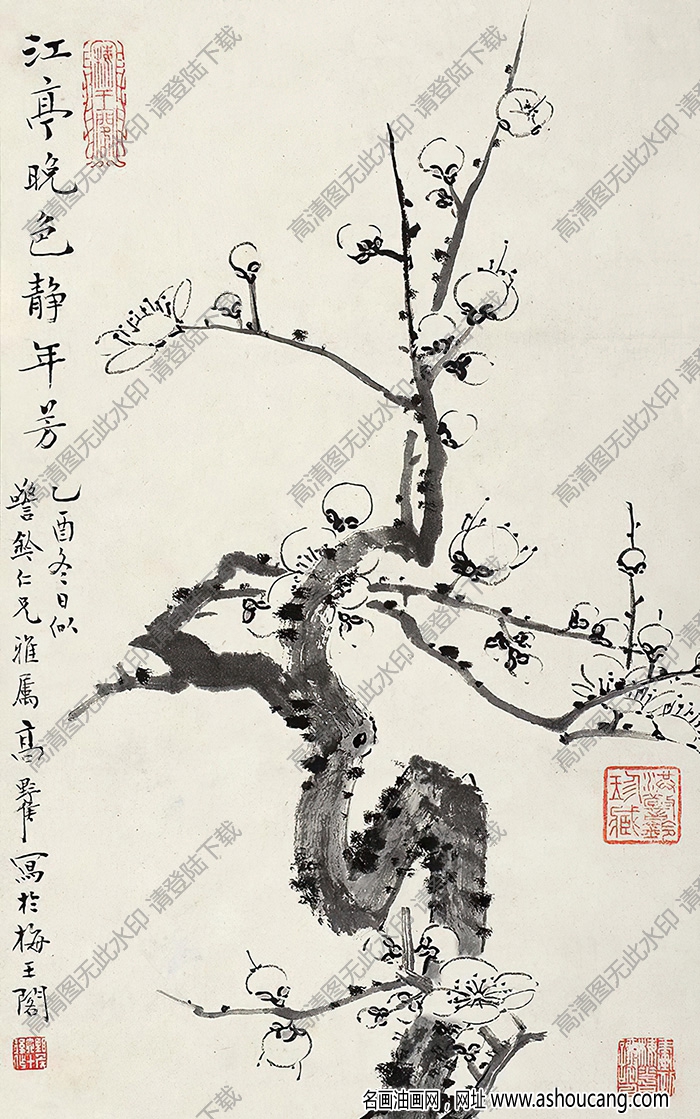 江亭晚色静年芳
乙酉冬日似
警鈴仁兄雅属 高野侯 寫於梅王閣
高清图无此水印 请登陆下载
名画油画网,网址 www.ashoucang.com